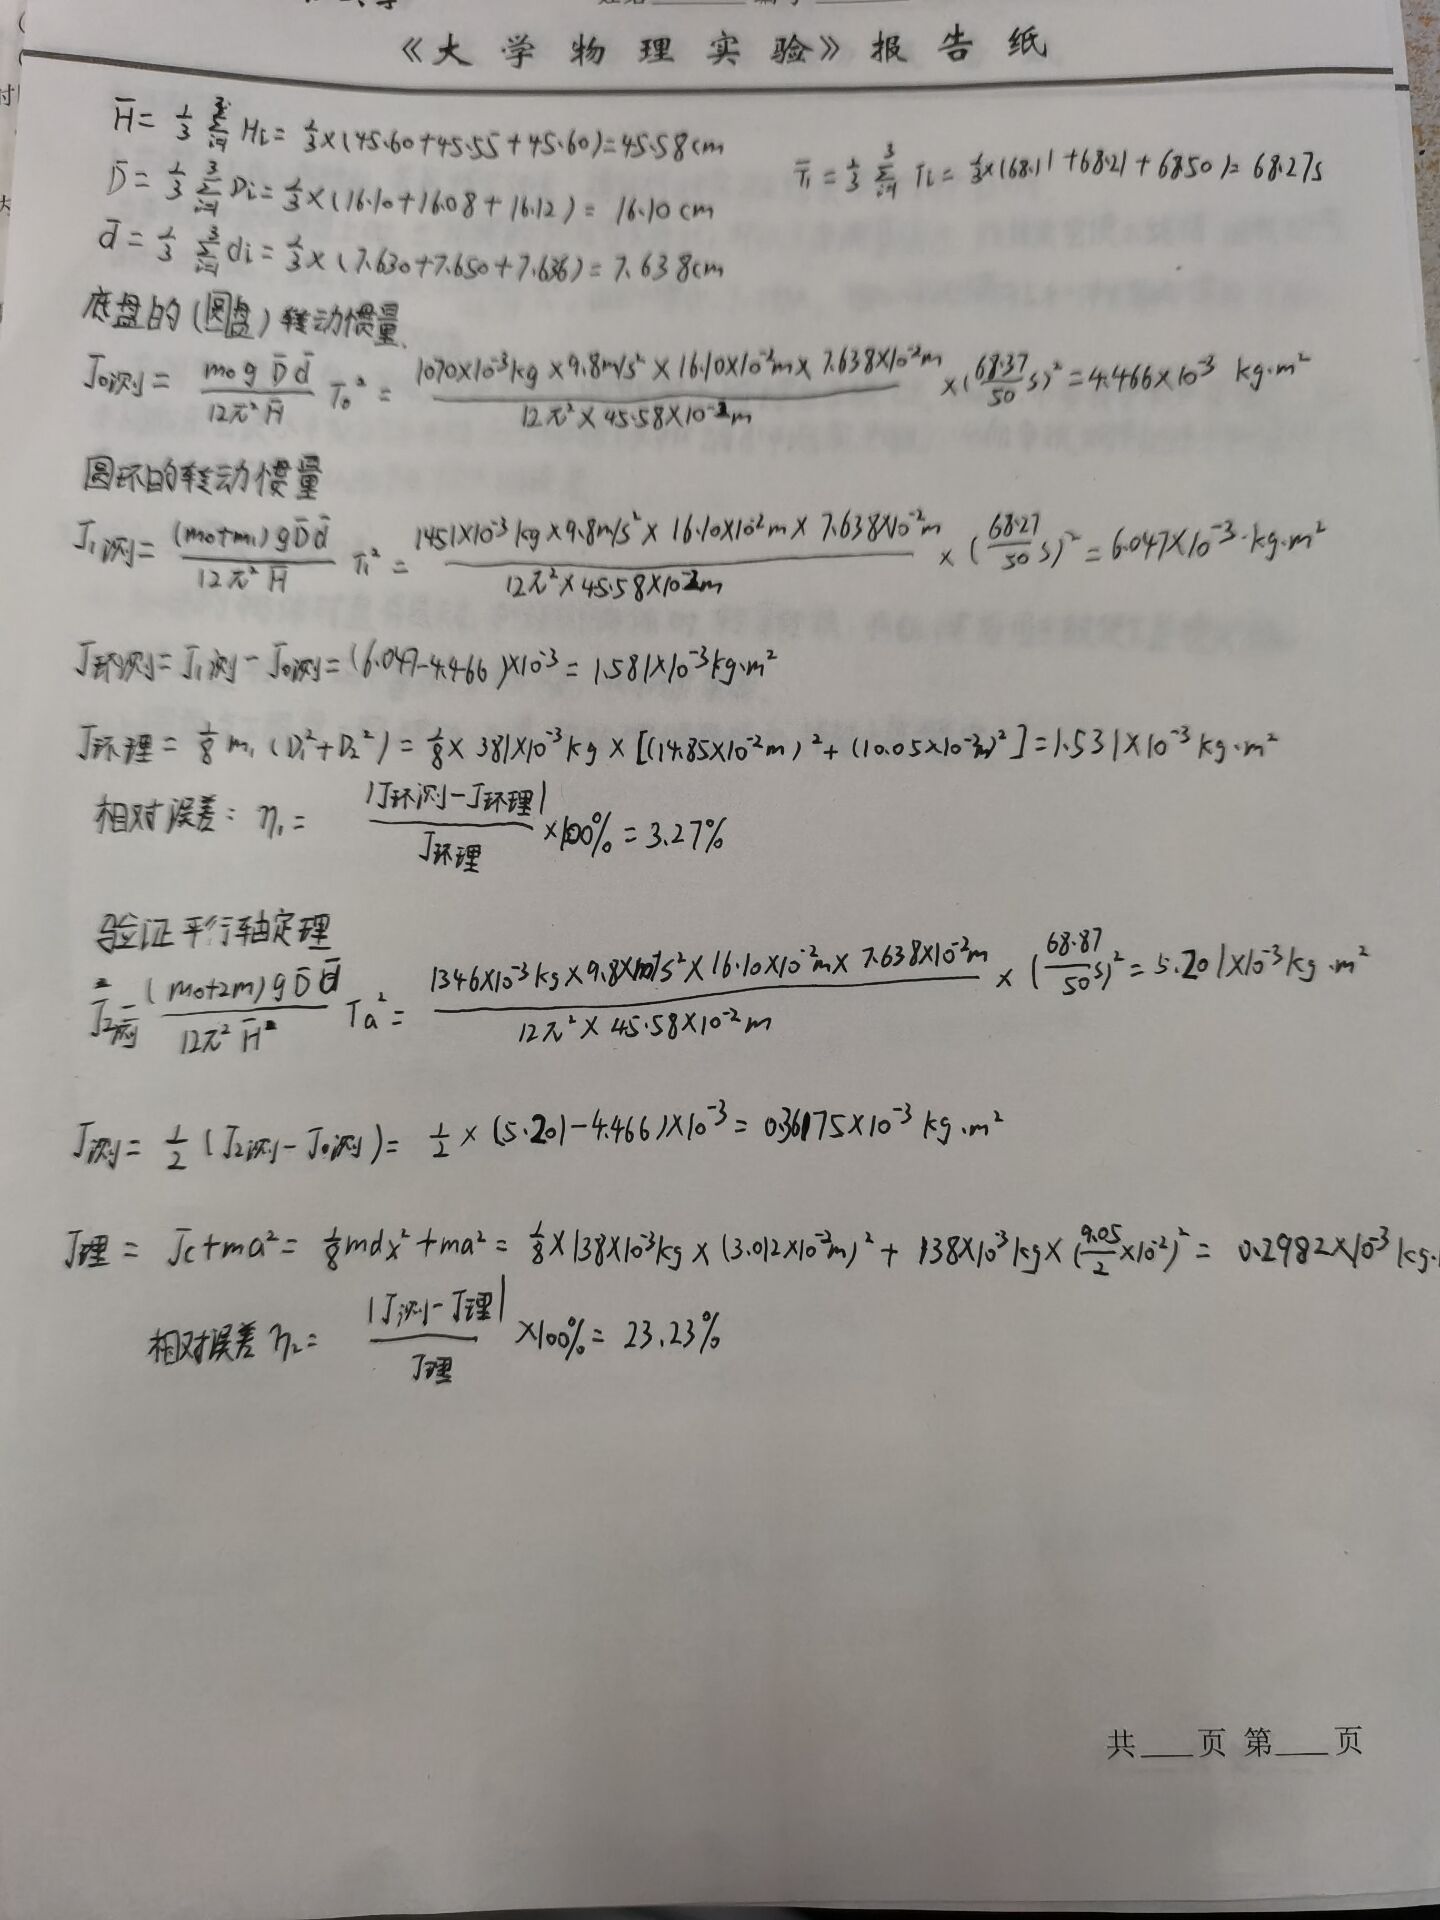 《大学物理实验》报告纸
H̄ = 1/3 Σ(i=1→3) Hi = 1/3×(45.60+45.55+45.60)=45.58cm
T̄₁ = 1/3 Σ(i=1→3) Ti = 1/3×(68.11+68.21+68.50)= 68.27s
D̄ = 1/3 Σ(i=1→3) Di = 1/3×(16.10+16.08+16.12) = 16.10cm
d̄ = 1/3 Σ(i=1→3) di = 1/3×(7.630+7.650+7.636) = 7.638cm
底盘的(圆盘)转动惯量
J₀测 = m₀gD̄d̄/12π²H̄ T₀² = 1070×10⁻³kg×9.8m/s²×16.10×10⁻²m×7.638×10⁻²m/12π²×45.58×10⁻²m ×(68.37/50 s)² = 4.466×10⁻³ kg·m²
圆环的转动惯量
J₁测 = (m₀+m₁)gD̄d̄/12π²H̄ T₁² = 1451×10⁻³kg×9.8m/s²×16.10×10⁻²m×7.638×10⁻²m/12π²×45.58×10⁻²m ×(68.27/50 s)² = 6.047×10⁻³·kg·m²
J环测 = J₁测 - J₀测 = (6.047-4.466)×10⁻³ = 1.581×10⁻³kg·m²
J环理 = 1/8 m₁(D₁²+D₂²) = 1/8×381×10⁻³kg×[(14.85×10⁻²m)²+(10.05×10⁻²m)²] = 1.531×10⁻³kg·m²
相对误差: η₁ = |J环测-J环理|/J环理 ×100% = 3.27%
验证平行轴定理
J₂测 = (m₀+2m)gD̄d̄/12π²H̄ Ta² = 1346×10⁻³kg×9.8m/s²×16.10×10⁻²m×7.638×10⁻²m/12π²×45.58×10⁻²m ×(68.87/50 s)² = 5.201×10⁻³kg·m²
J测 = 1/2(J₂测-J₀测) = 1/2×(5.201-4.466)×10⁻³ = 0.36175×10⁻³kg·m²
J理 = Jc+ma² = 1/8mdx²+ma² = 1/8×138×10⁻³kg×(3.012×10⁻²m)²+138×10⁻³kg×(9.05/2×10⁻²)² = 0.2982×10⁻³kg·
相对误差 η₂ = |J测-J理|/J理 ×100% = 23.23%
共___页 第___页